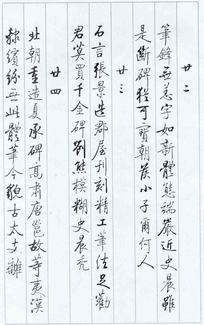 廿二
筆鋒無恙字如新體態端嚴近史晨雖
是斷碑猶可寶朝侯小子爾何人
廿三
石言張景造郡屋刊刻精工筆佳足勸
君莫買千金碑劉熊模糊史晨禿
廿四
北朝重造夏承碑高肅唐邕故等夷漢
隸繽紛無此體筆今貌古太支離